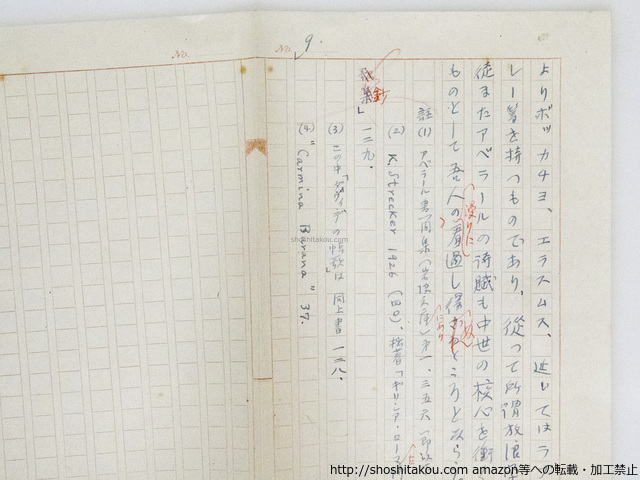 No.
No. 9.
よりボッカチヨ、エラスムス、近くてはラ
しー著を持つものであり、従って所謂放浪
徒またアベラールの詩賦も中世の核心を衝く
ものとして吾人の看過し得
漫りに
註(1) アベラール書簡集(岩波文庫)
(2) K. Strecker 1926 (四〇)、拙著「ギリシア・ローマ
鈔
集」一二九.
(3) この中「ダヴィデの悼歌」は同上書一二八.
(4) "Carmina Burana" 37.
shoshitakou.com
http://shoshitakou.com amazon等への転載・加工禁止